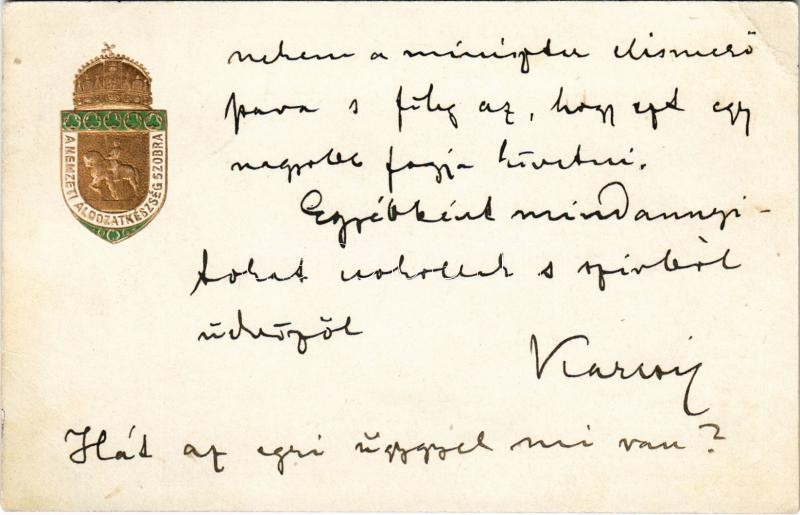 A NEMZETI ÁLDOZATKÉSZSÉG SZOBRA
nekem a miniszter elismerő
szava s főleg az, hogy ezt egy
nagyobb fogja követni.
Egyébként mindannyi-
tokat csókollak s szívből
üdvözöl
Karcsi
Hát az egri ügygyel mi van?